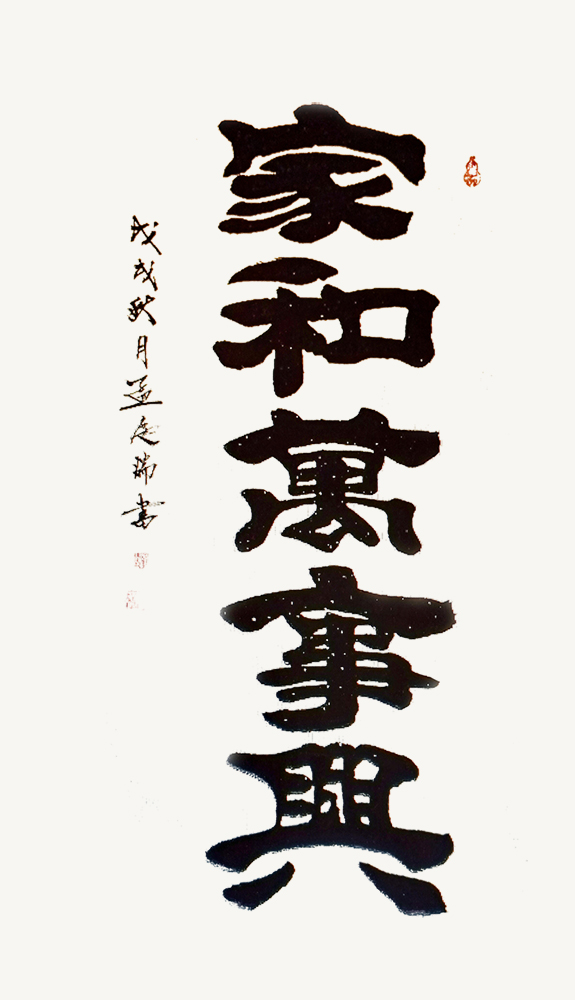 家和萬事興
戊戌秋月孟庆瑞書